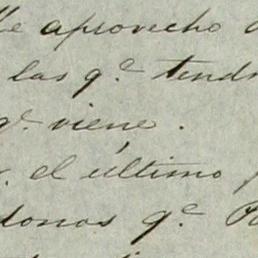 Me aprovecho
las q.e tendr
q.e viene.
el último
donas q.e